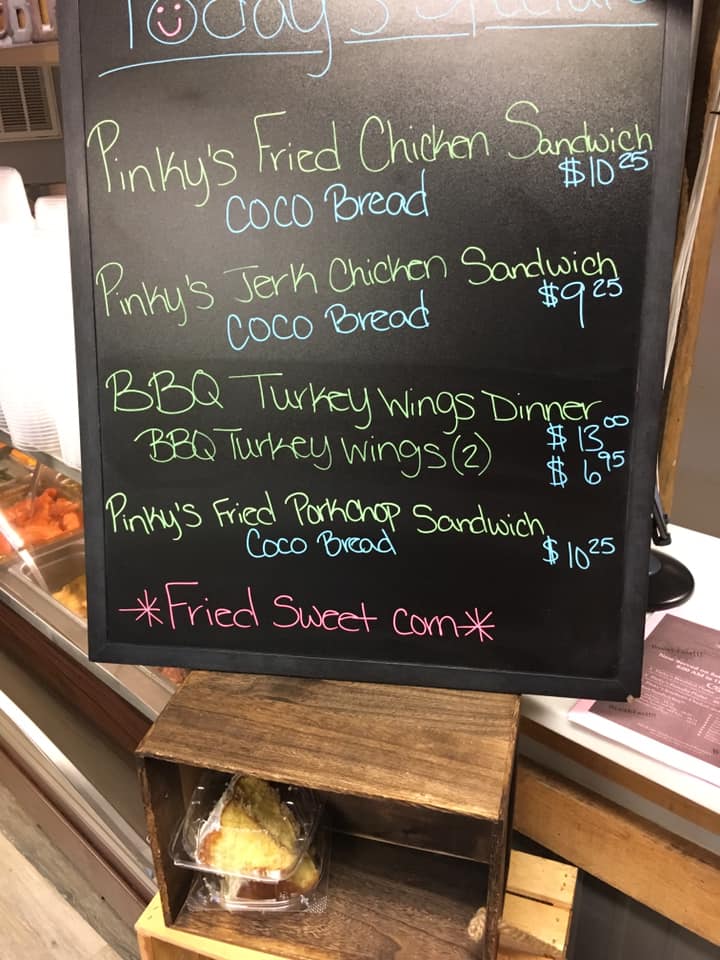 Today's Specials
Pinky's Fried Chicken Sandwich
$10 25
Coco Bread
Pinky's Jerk Chicken Sandwich
$9 25
Coco Bread
BBQ Turkey Wings Dinner
$13 00
BBQ Turkey Wings (2)
$6 95
Pinky's Fried Porkchop Sandwich
Coco Bread
$10 25
*Fried Sweet Corn*